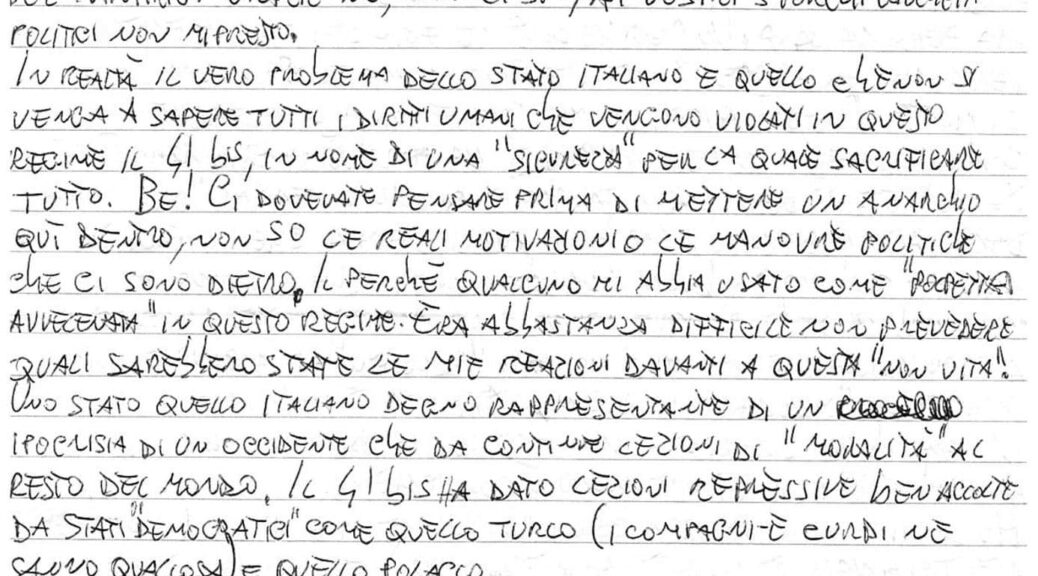 POLITICI NON MI PRESTO.
IN REALTÀ IL VERO PROBLEMA DELLO STATO ITALIANO E QUELLO CHE NON SI
VENGA A SAPERE TUTTI I DIRITTI UMANI CHE VENGONO VIOLATI IN QUESTO
REGIME IL 41 bis, IN NOME DI UNA "SICUREZZA" PER LA QUALE SACRIFICARE
TUTTO. BE! CI DOVEVATE PENSARE PRIMA DI METTERE UN ANARCHICO
QUÌ DENTRO, NON SO LE REALI MOTIVAZIONI O LE MANOVRE POLITICHE
CHE CI SONO DIETRO. IL PERCHÈ QUALCUNO MI ABBIA USATO COME "POLPETTA
AVVELENATA" IN QUESTO REGIME. ERA ABBASTANZA DIFFICILE NON PREVEDERE
QUALI SAREBBERO STATE LE MIE REAZIONI DAVANTI A QUESTA "NON VITA".
UNO STATO QUELLO ITALIANO DEGNO RAPPRESENTANTE DI UN
IPOCRISIA DI UN OCCIDENTE CHE DA CONTINUE LEZIONI DI "MORALITÀ" AL
RESTO DEL MONDO. IL 41 bis HA DATO LEZIONI REPRESSIVE BEN ACCOLTE
DA STATI "DEMOCRATICI" COME QUELLO TURCO (I COMPAGNI-E CURDI NE
SANNO QUALCOSA) E QUELLO POLACCO